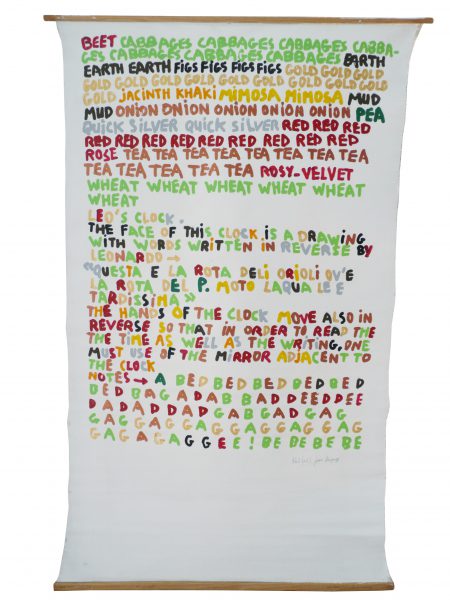 BEET CABBAGES CABBAGES CABBAGES CABBA-
GES CABBAGES CABBAGES CABBAGES EARTH
EARTH EARTH FIGS FIGS FIGS FIGS GOLD GOLD GOLD
GOLD GOLD GOLD GOLD GOLD GOLD GOLD GOLD
GOLD JACINTH KHAKI MIMOSA MIMOSA MUD
MUD ONION ONION ONION ONION ONION PEA
QUICK SILVER QUICK SILVER RED RED RED
RED RED RED RED RED RED RED RED RED
ROSE TEA TEA TEA TEA TEA TEA TEA TEA
TEA TEA TEA TEA TEA TEA ROSY-VELVET
WHEAT WHEAT WHEAT WHEAT WHEAT
WHEAT
LEO'S CLOCK.
THE FACE OF THIS CLOCK IS A DRAWING
WITH WORDS WRITTEN IN REVERSE BY
LEONARDO →
"QUESTA E LA ROTA DELI ORIOLI OV'E
LA ROTA DEL P. MOTO LAQUALE E
TARDISSIMA »
THE HANDS OF THE CLOCK MOVE ALSO IN
REVERSE SO THAT IN ORDER TO READ THE
THE TIME AS WELL AS THE WRITING, ONE
MUST USE OF THE MIRROR ADJACENT TO
THE CLOCK
NOTES → A BED BED BED BED BED
BED BAG ADAB BADDEEDDEE
DADADDAD GABGAD GAG
GAGGAGGAGGAGGAGGAG
GAG A GAGGEE! BE BE BE BE